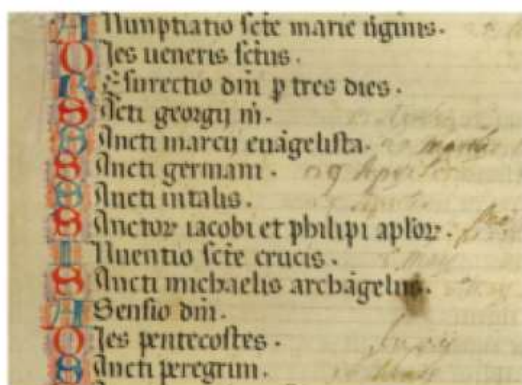 ANunptiatio scte marie u̅ginis.
DIes ueneris sctus.
REsurectio dni p tres dies.
Scti georgij m̅.
SAncti marcij eua̅gelista.
SAncti germani.
SAncti uitalis.
SAnctor iacobi et philipi aplor.
INuentio scte crucis.
SAncti michaelis archa̅gelus.
ASensio dni.
DIes pentecostes.
SAncti peregrini.